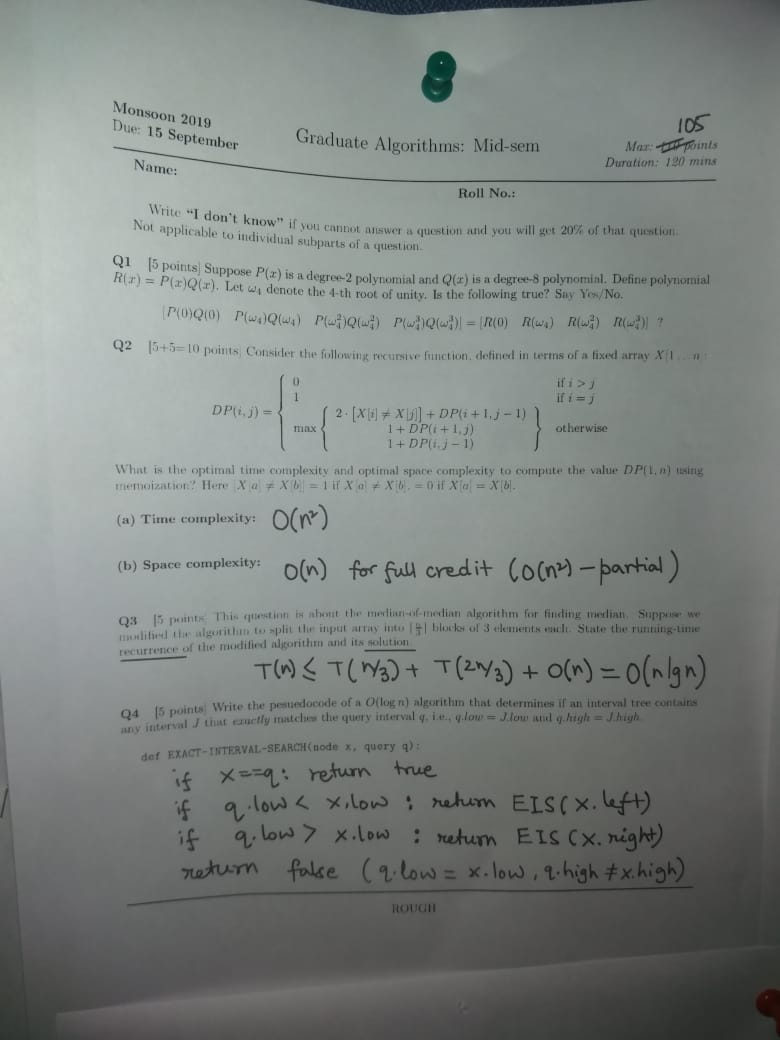 105
Monsoon 2019
Due: 15 September
Graduate Algorithms: Mid-sem
Max: 110 points
Duration: 120 mins
Name:
Roll No.:
Write "I don't know" if you cannot answer a question and you will get 20% of that question.
Not applicable to individual subparts of a question.
Q1 [5 points] Suppose P(x) is a degree-2 polynomial and Q(x) is a degree-8 polynomial. Define polynomial
R(x) = P(x)Q(x). Let ω₄ denote the 4-th root of unity. Is the following true? Say Yes/No.
[P(0)Q(0) P(ω₄)Q(ω₄) P(ω₄²)Q(ω₄²) P(ω₄³)Q(ω₄³)] = [R(0) R(ω₄) R(ω₄²) R(ω₄³)] ?
Q2 [5+5=10 points] Consider the following recursive function, defined in terms of a fixed array X[1...n]:
0 if i > j
1 if i = j
DP(i, j) = max { 2 · [X[i] ≠ X[j]] + DP(i + 1, j − 1) } otherwise
1 + DP(i + 1, j)
1 + DP(i, j − 1)
What is the optimal time complexity and optimal space complexity to compute the value DP(1, n) using
memoization? Here [X[a] ≠ X[b]] = 1 if X[a] ≠ X[b], = 0 if X[a] = X[b].
(a) Time complexity: O(n²)
(b) Space complexity: O(n) for full credit (O(n²) - partial)
Q3 [5 points] This question is about the median-of-median algorithm for finding median. Suppose we
modified the algorithm to split the input array into ⌈n/3⌉ blocks of 3 elements each. State the running-time
recurrence of the modified algorithm and its solution.
T(n) ≤ T(n/3) + T(2n/3) + O(n) = O(n lg n)
Q4 [5 points] Write the pesuedocode of a O(log n) algorithm that determines if an interval tree contains
any interval J that exactly matches the query interval q, i.e., q.low = J.low and q.high = J.high.
def EXACT-INTERVAL-SEARCH(node x, query q):
if x==q: return true
if q.low < x.low : return EIS(x.left)
if q.low > x.low : return EIS(x.right)
return false (q.low = x.low, q.high ≠ x.high)
ROUGH